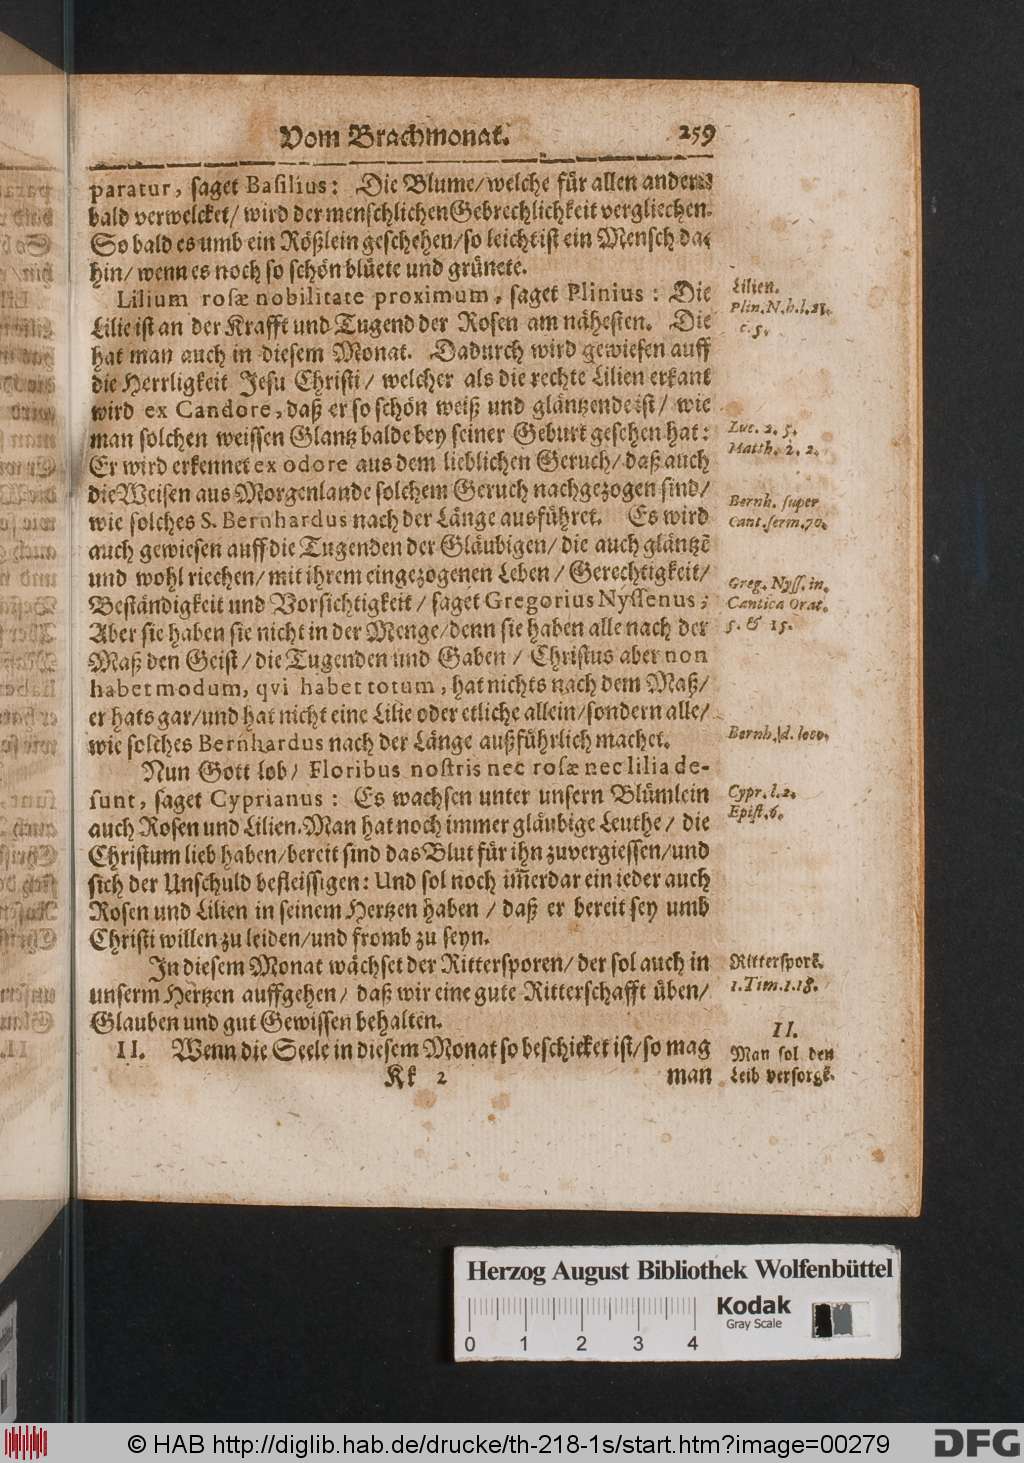 Vom Brachmonat. 259
paratur, saget Basilius: Die Blume/welche für allen andern
bald verwelcket/ wird der menschlichen Gebrechlichkeit vergliechen.
So bald es umb ein Rößlein geschehen/so leicht ist ein Mensch da-
hin/ wenn es noch so schön blüete und grünete.
Lilium rosæ nobilitate proximum, saget Plinius: Die
Lilie ist an der Krafft und Tugend der Rosen am nähesten. Die
hat man auch in diesem Monat. Dadurch wird gewiesen auff
die Herrligkeit Jesu Christi/ welcher als die rechte Lilien erkant
wird ex Candore, daß er so schön weiß und gläntzende ist/ wie
man solchen weissen Glantz balde bey seiner Geburt gesehen hat:
Er wird erkennet ex odore aus dem lieblichen Geruch/daß auch
die Weisen aus Morgenlande solchem Geruch nachgezogen sind/
wie solches S. Bernhardus nach der Länge ausführet. Es wird
auch gewiesen auff die Tugenden der Gläubigen/ die auch gläntzē
und wohl riechen/ mit ihrem eingezogenen Leben/ Gerechtigkeit/
Beständigkeit und Vorsichtigkeit/ saget Gregorius Nyssenus;
Aber sie haben sie nicht in der Menge/denn sie haben alle nach der
Maß den Geist/ die Tugenden und Gaben/ Christus aber non
habet modum, qvi habet totum, hat nichts nach dem Maß/
er hats gar/und hat nicht eine Lilie oder etliche allein/sondern alle/
wie solches Bernhardus nach der Länge außführlich machet.
Nun Gott lob/ Floribus nostris nec rosæ nec lilia de-
sunt, saget Cyprianus: Es wachsen unter unsern Blümlein
auch Rosen und Lilien. Man hat noch immer gläubige Leuthe/ die
Christum lieb haben/bereit sind das Blut für ihn zuvergiessen/und
sich der Unschuld befleissigen: Und sol noch im̃erdar ein ieder auch
Rosen und Lilien in seinem Hertzen haben/ daß er bereit sey umb
Christi willen zu leiden/und fromb zu seyn.
In diesem Monat wächset der Rittersporen/ der sol auch in
unserm Hertzen auffgehen/ daß wir eine gute Ritterschafft üben/
Glauben und gut Gewissen behalten.
II. Wenn die Seele in diesem Monat so beschicket ist/so mag
Kk 2 man
Lilien.
Plin. N. h. l. 21.
c. 5.
Luc. 2. 5.
Matth. 2. 2.
Bernh. super
Cant. serm. 70.
Greg. Nyss. in.
Cantica Orat.
5. & 15.
Bernh. d. loco.
Cypr. l. 2.
Epist. 6.
Ritterspork.
1. Tim. 1. 18.
II.
Man sol den
Leib versorgē.
Herzog August Bibliothek Wolfenbüttel
Kodak
Gray Scale
0 1 2 3 4
© HAB http://diglib.hab.de/drucke/th-218-1s/start.htm?image=00279
DFG